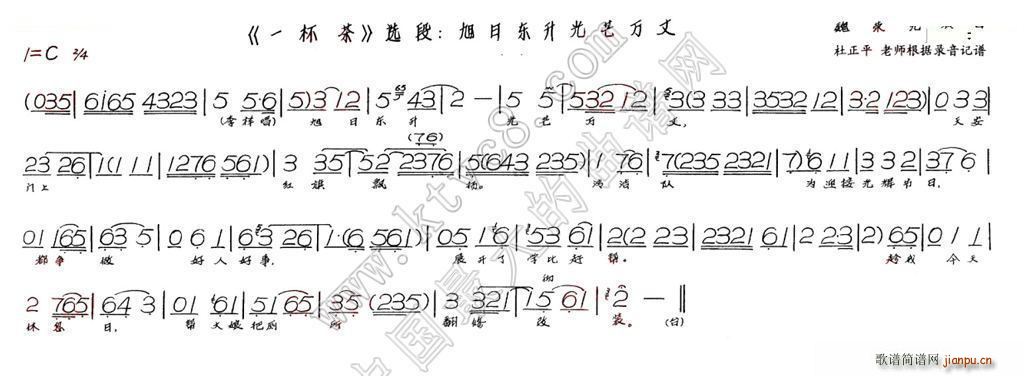 《一杯茶》选段：旭日东升光芒万丈
1=C 2/4
杜正平 老师根据录音记谱
(035|6165 4323|5 5·6|5)312|5 43|2 —|5 5|5321 2|3(3 33|3532 12|3·2 123)|0 3 3|
(李祥唱) 旭日东升 光芒万丈, 天安
(76)
23 26|1(1 1|1276 561)|3 35|52 2376|5(643 235)|1 76|7(235 2321|7)6 11|3 3 2|37 6|
门上 红旗飘扬。 队 为迎接光辉节日,
01 165|63 5|0 6 1|63 26|1·(6 561)|05 16|53 61|2(2 23|2321 61|2 23|2)65|0 1 1|
都争做 好人好事, 展开了学比赶帮。 趁我今天
2 765|64 3|01 61|51 65|35 (235)|3 321|15 61|2 —‖
休息日, 帮大娘把厕所 翻 改装。
www.ktvc8.com
中国最大的曲谱网
歌谱简谱网 jianpu.cn